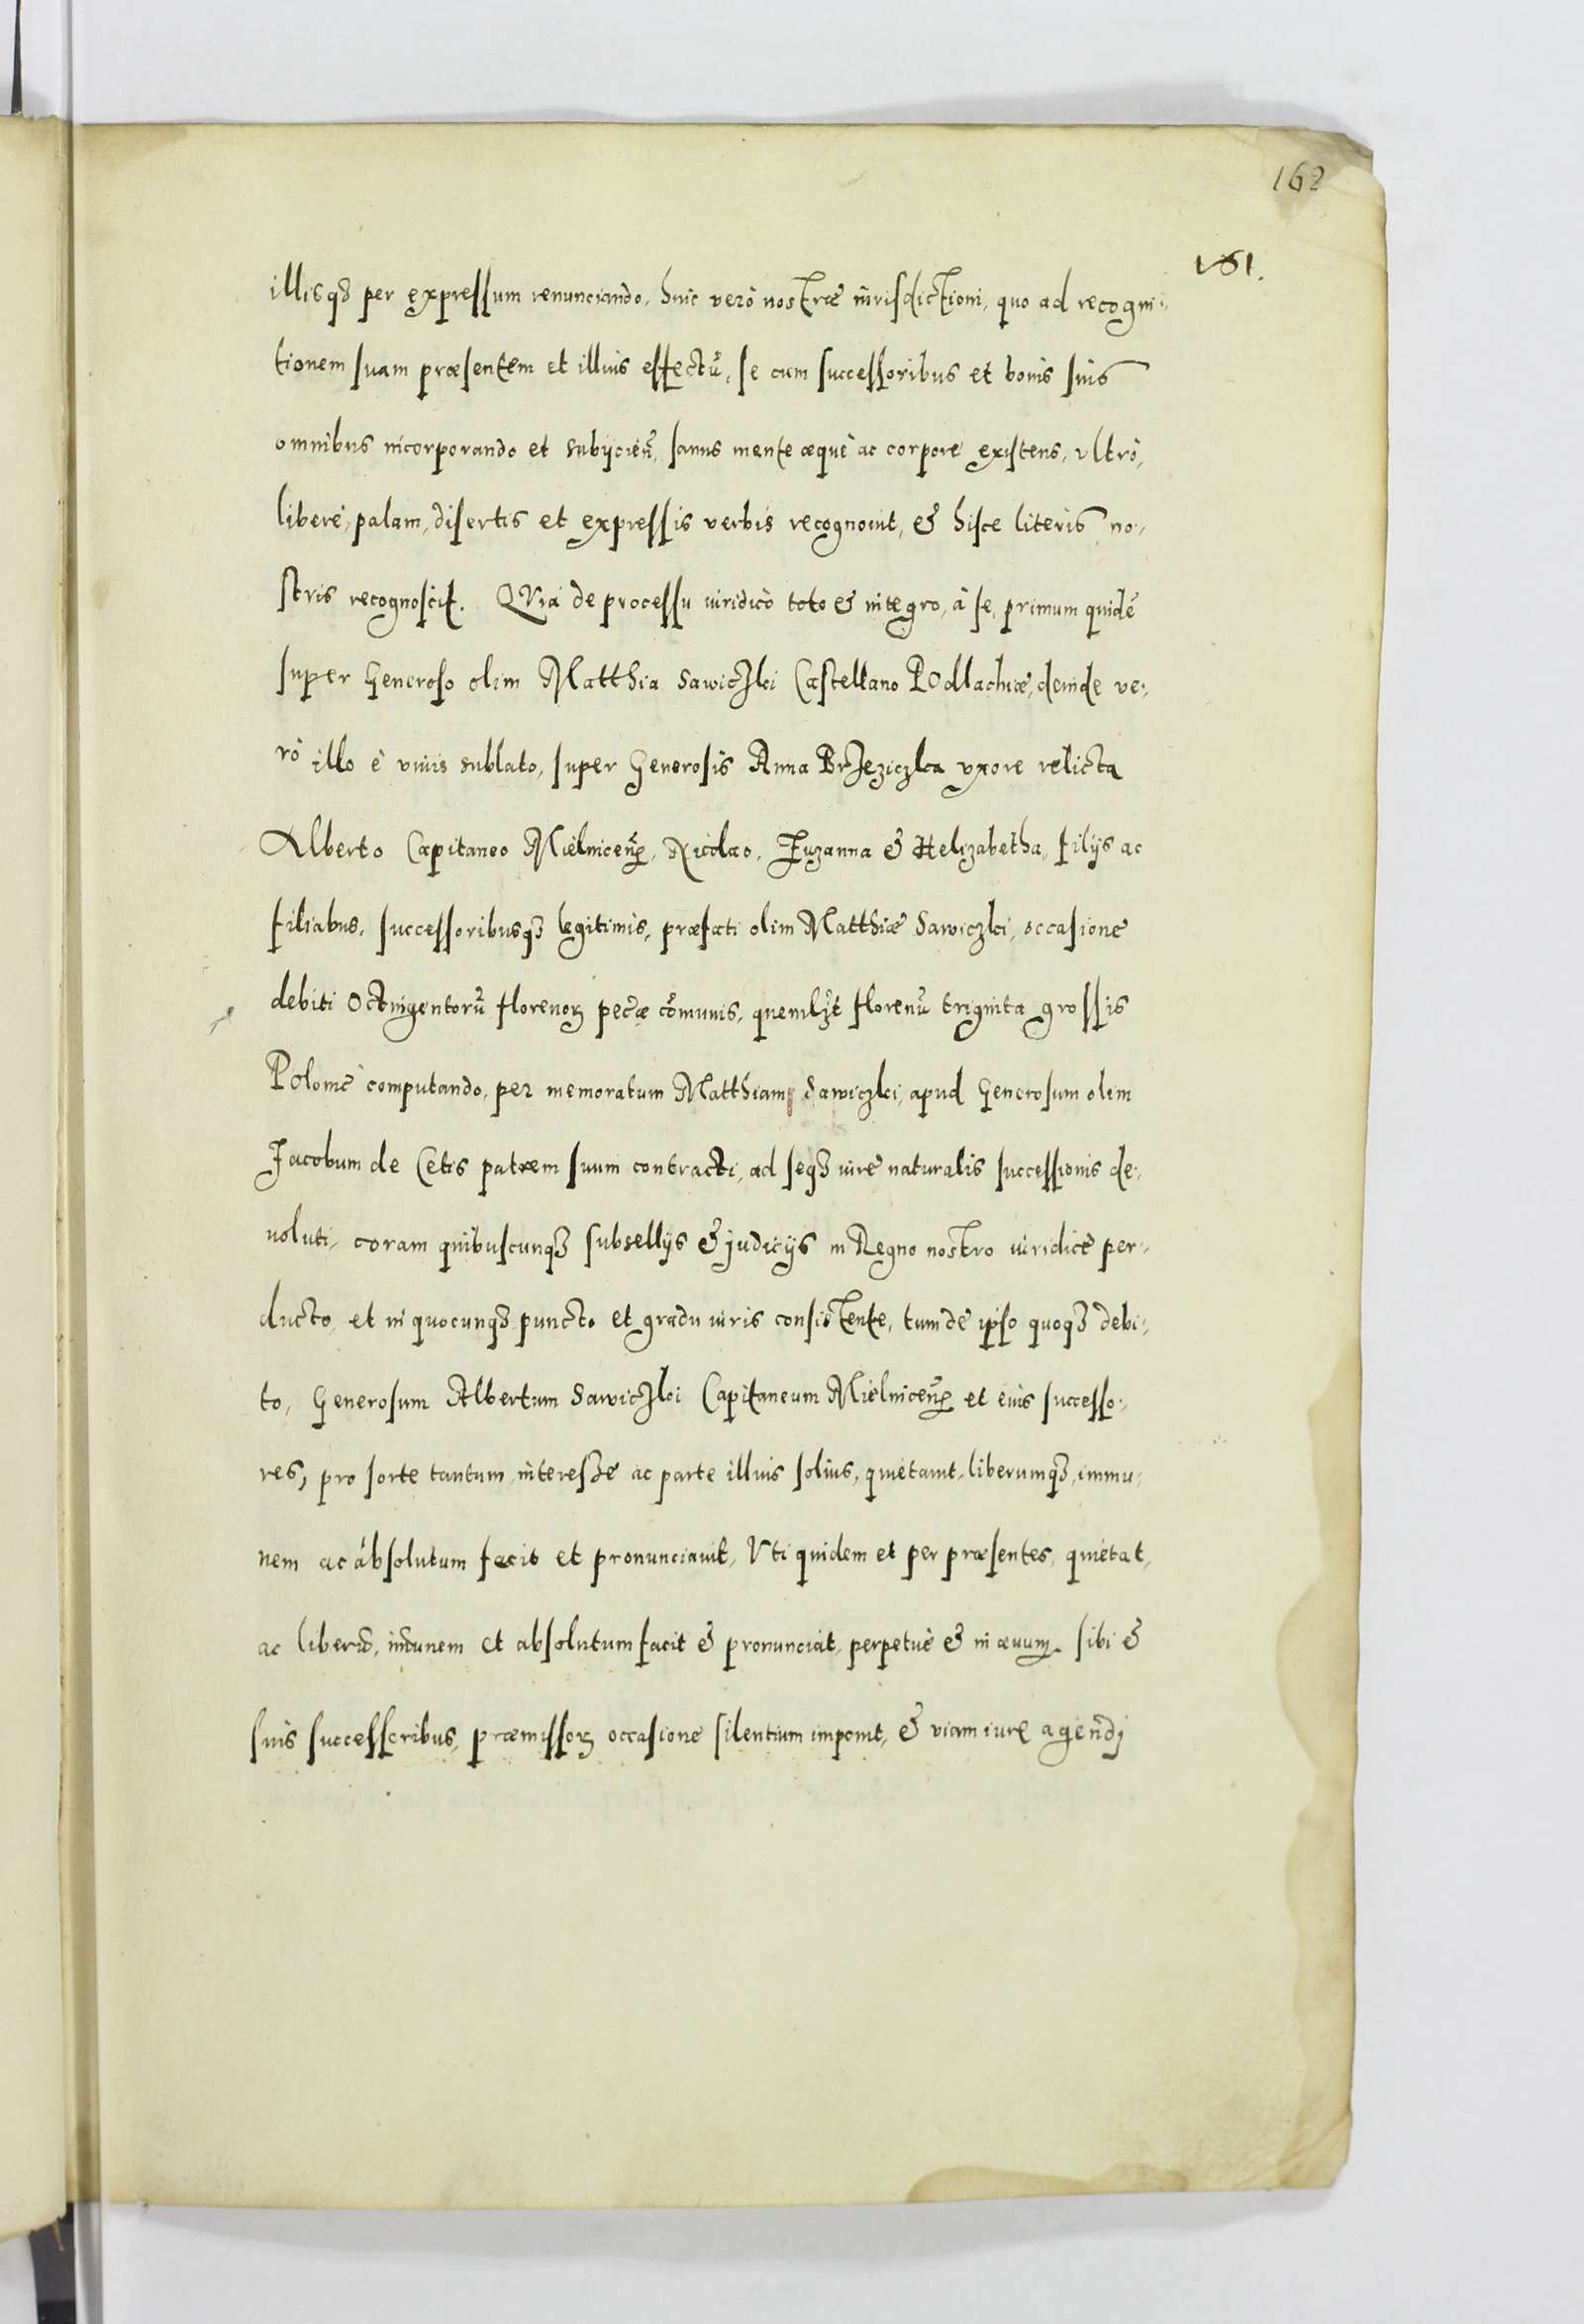 162
161.
illisq3 per expressum renunciando, huic verò nostræ iurisdictioni, quo ad recogni-
tionem suam præsentem et illius effectũ, se cum successoribus et bonis suis
omnibus incorporando et subijcieñ, sanus mente æquè ac corpore existens, vltrò,
liberè, palam, disertis et expressis verbis recognouit, & hisce literis no-
stris recognoscit. QVia de processu iuridico toto & integro, à se, primum quidẽ
super Generoso olim Matthia Sawiczki Castellano POdlachiæ, deinde ve-
rò illo è viuis sublato, super Generosis Anna Brzeziczka vxore relicta
Alberto Capitaneo Mielniceñ, Nicolao, Zuzanna & Helizabetha, filijs ac
filiabus, successoribusq3 legitimis, præfati olim Matthiæ Sawiczki, occasione
debiti Octingentorũ florenoꝝ pecæ cõmunis, quemlꝫt florenũ triginta grossis
POlonic computando, per memoratum Matthiam Sawiczki, apud Generosum olim
Jacobum de Cetis patrem suum contracti, ad seq3 iure naturalis successionis de-
uoluti, coram quibuscunq3 subsellijs & judicijs in Regno nostro iuridicè per-
ducto, et in quocunq3 puncto et gradu iuris consistente, tum de ipso quoq3 debi-
to, Generosum Albertum Sawiczki Capitaneum Mielniceñ et eius successo-
res, pro sorte tantum, interesse ac parte illius solius, quietauit, liberumq3, immu-
nem ac absolutum fecit et pronunciauit, Vti quidem et per præsentes, quietat,
ac liberũ, imunem et absolutum facit & pronunciat, perpetuè & in æuum, sibi &
suis successoribus, præmissoꝝ occasione silentium imponit, & viam iure agendi